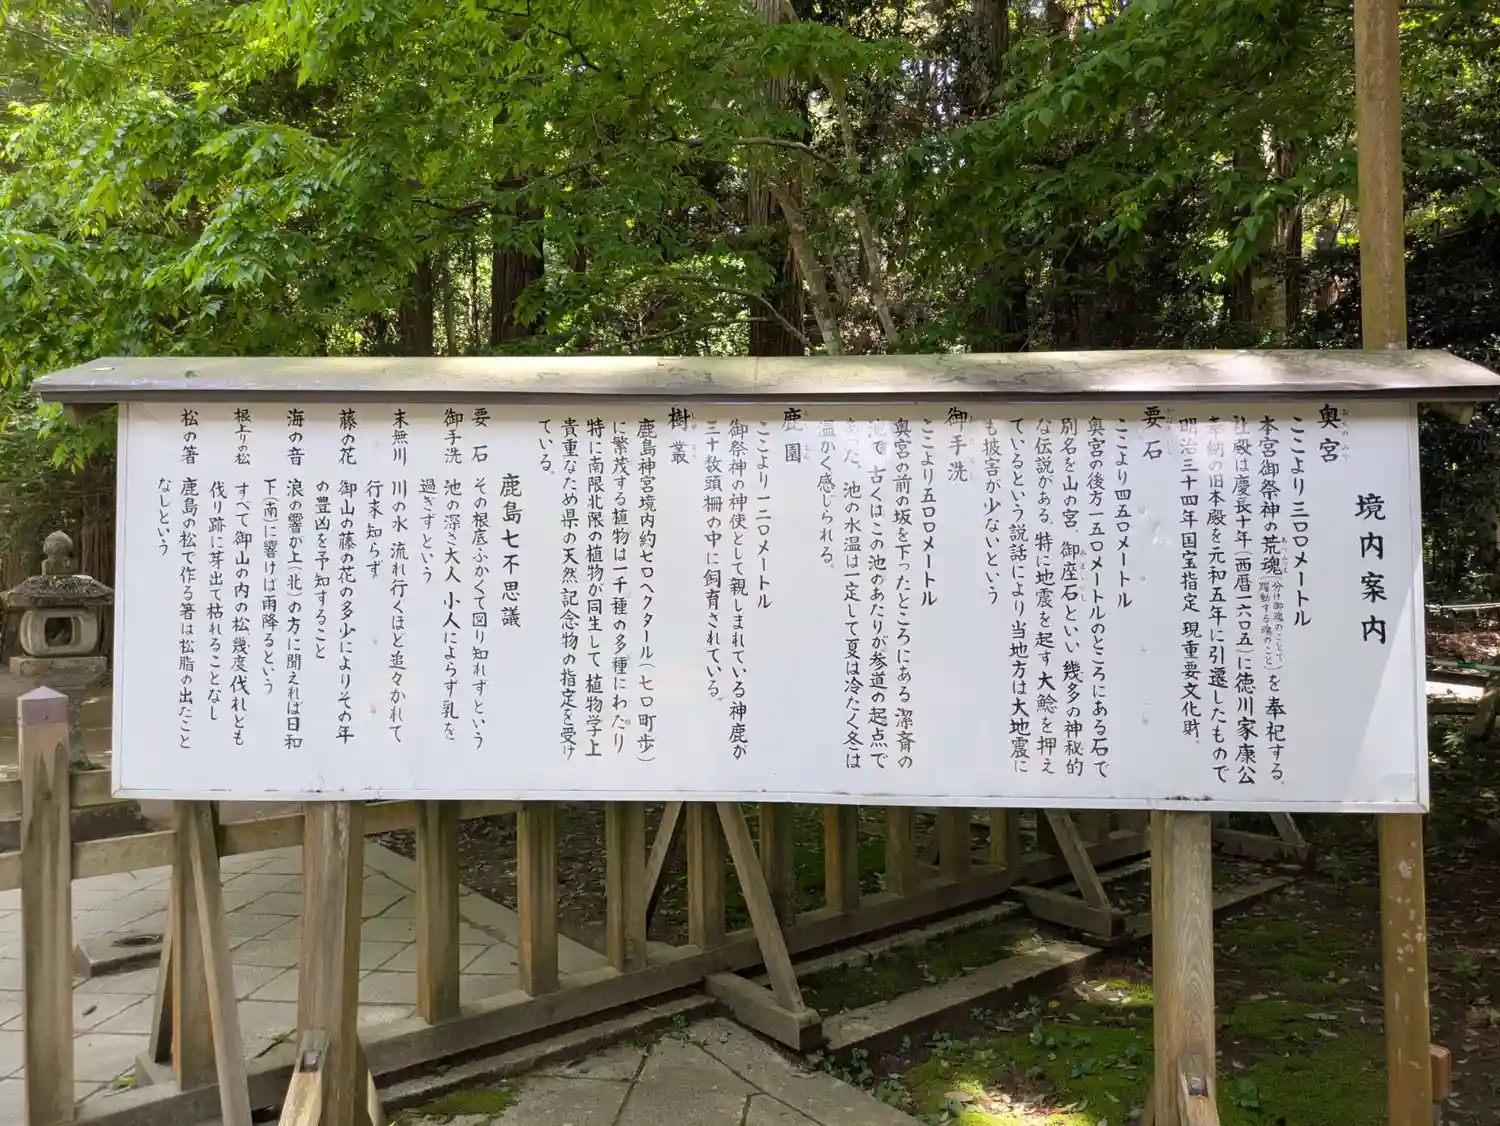 境内案内
奥宮
おくのみや
ここより三〇〇メートル
本宮御祭神の荒魂(分け御魂のことで、躍動する魂のこと)を奉祀する。
あらみたま
社殿は慶長十年(西暦一六〇五)に徳川家康公
奉納の旧本殿を元和五年に引遷したもので
明治三十四年国宝指定、現重要文化財。
要石
かなめいし
ここより四五〇メートル
奥宮の後方一五〇メートルのところにある石で
別名を山の宮、御座石といい幾多の神秘的
みましいし
な伝説がある。特に地震を起す大鯰を押え
ているという説話により当地方は大地震に
も披害が少ないという
御手洗
みたらし
ここより五〇〇メートル
奥宮の前の坂を下ったところにある潔斎の
池で、古くはこの池のあたりが参道の起点で
あった。池の水温は一定して夏は冷たく冬は
温かく感じられる。
鹿園
ろくえん
ここより一二〇メートル
御祭神の神使として親しまれている神鹿が
三十数頭柵の中に飼育されている。
樹叢
じゅそう
鹿島神宮境内約七〇ヘクタール(七〇町歩)
に繁茂する植物は一千種の多種にわたり
特に南限北限の植物が同生して植物学上
貴重なため県の天然記念物の指定を受け
ている。
鹿島七不思議
要石 その根底ふかくて図り知れずという
御手洗 池の深さ大人小人によらず乳を
過ぎずという
末無川 川の水流れ行くほど追々かれて
行末知らず
藤の花 御山の藤の花の多少によりその年
の豊凶を予知すること
海の音 浪の響が上(北)の方に聞えれば日和
下(南)に響けば雨降るという
根上りの松 すべて御山の内の松幾度伐れども
伐り跡に芽出て枯れることなし
松の箸 鹿島の松で作る箸は松脂の出たこと
なしという